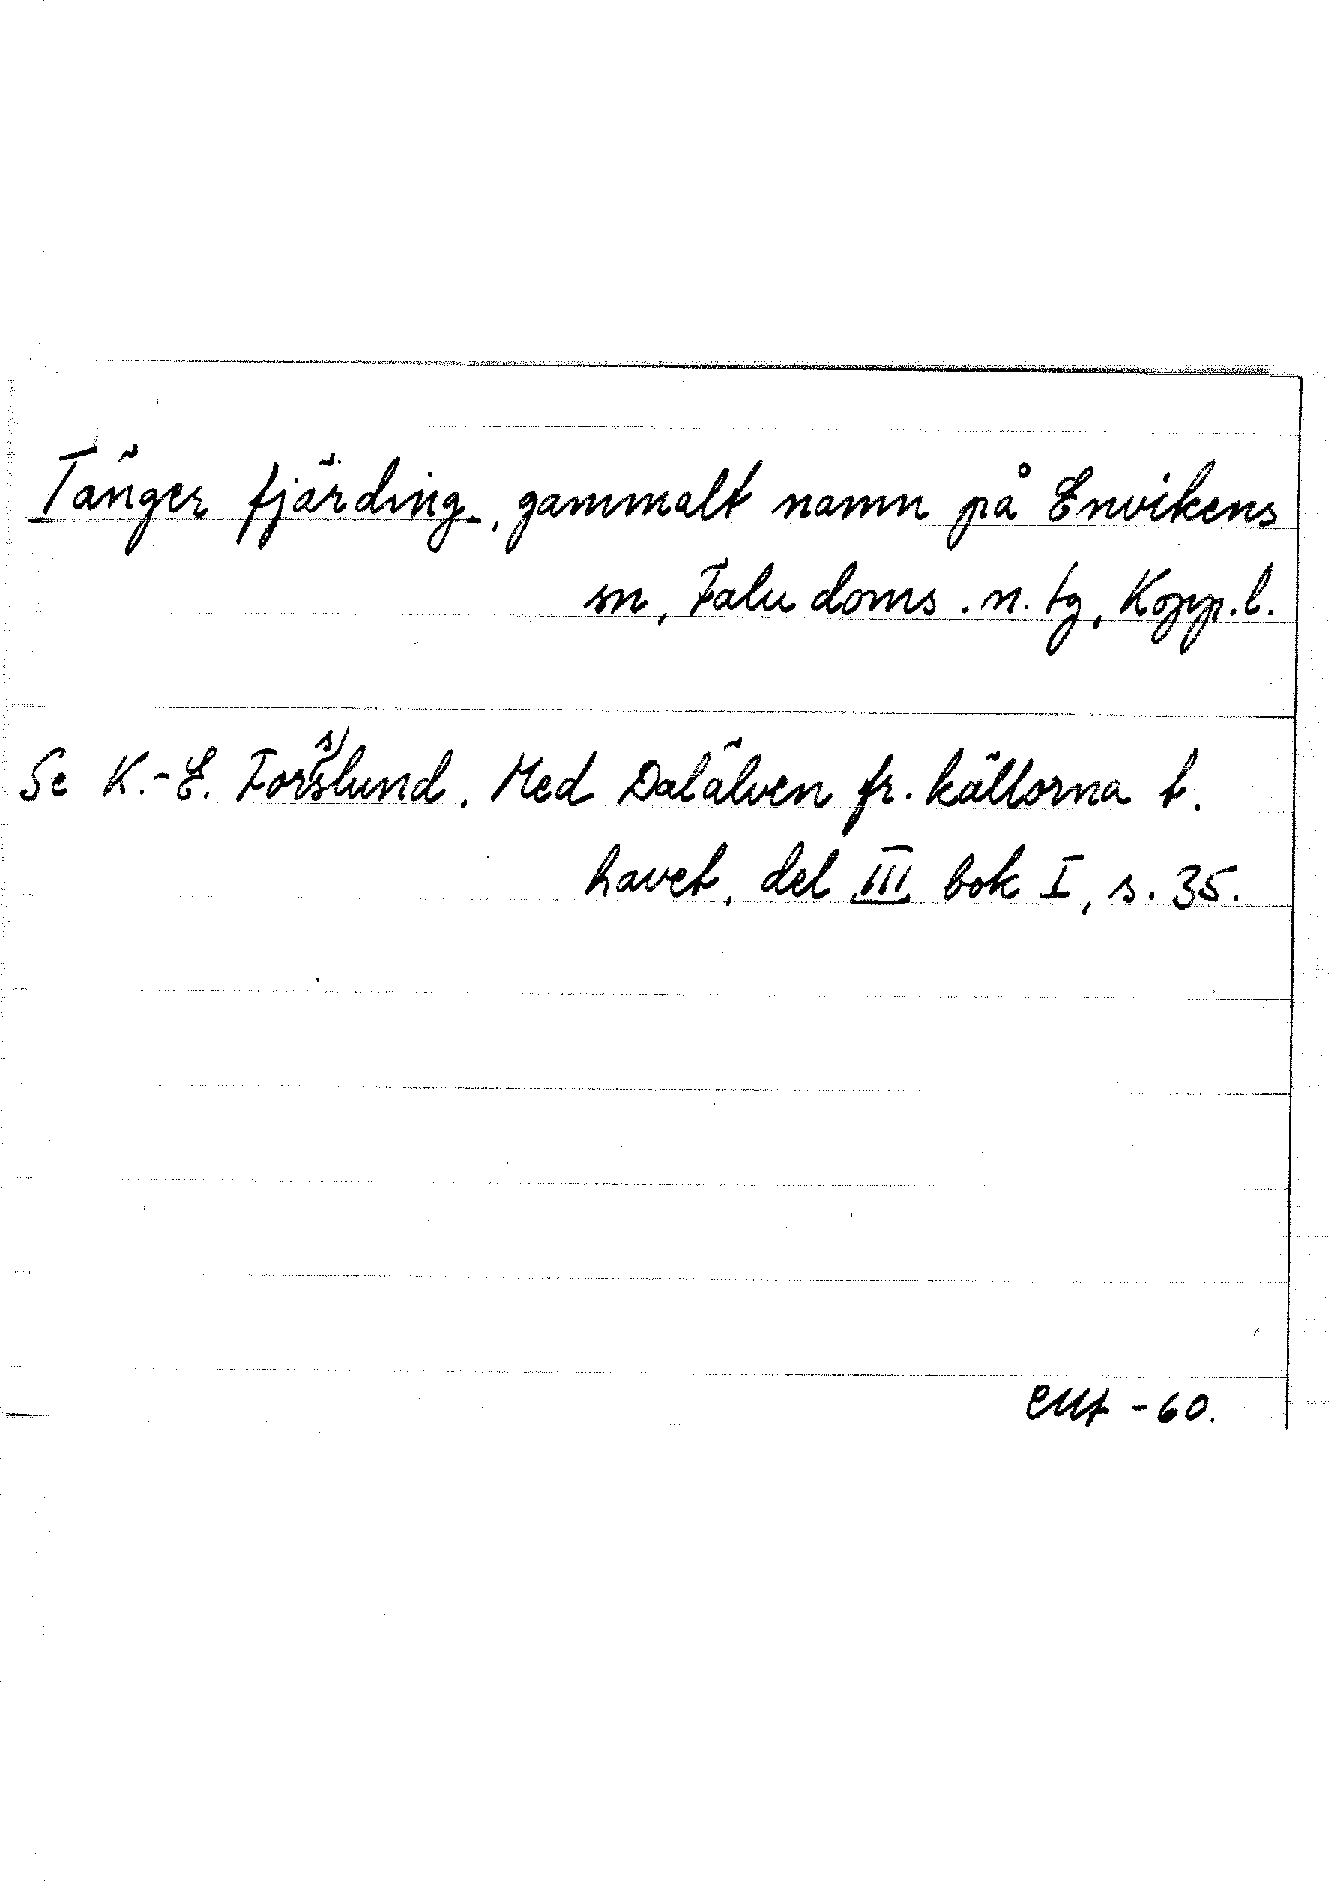 Tänger fjärding, gammalt namn på Envikens
sn, Falu doms. n. tg, Kopp. l.
Se K.-E. Forsslund. Med Dalälven fr. källorna t.
havet, del III bok I, s. 35.
-60.